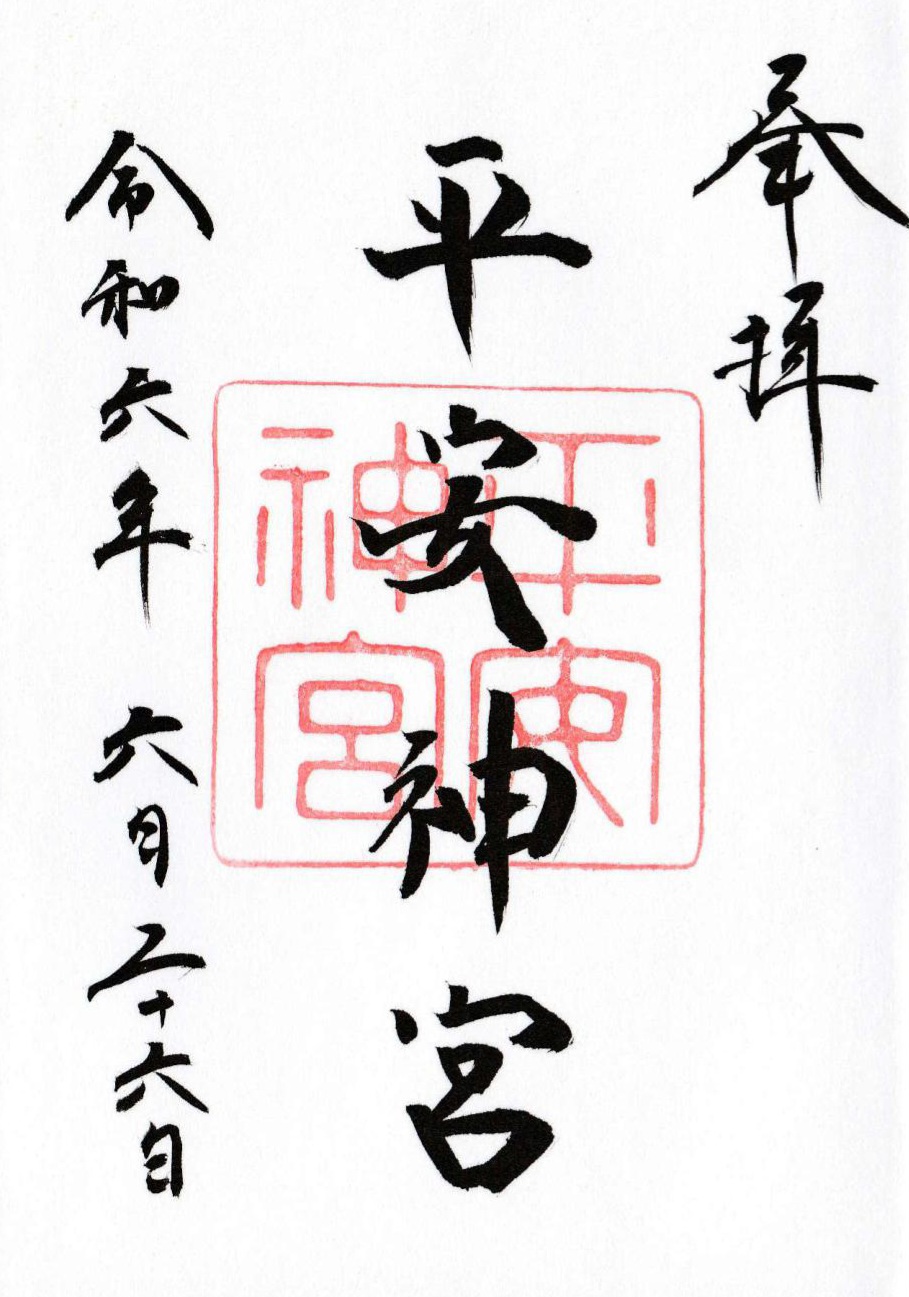 奉拝
平安神宮
平安神宮
令和六年 六月二十六日